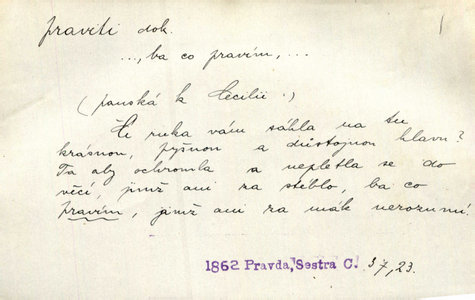 praviti dok.
..., ba co pravím, ...
(panská k Cecilii:)
Čí ruka vám sáhla na tu
krásnou, pyšnou a důstojnou hlavu?
Ta aby ochromla a nepletla se do
věcí, jimž ani za stéblo, ba co
pravím, jimž ani za mák nerozumí.
1862 Pravda, Sestra C. 37, 23.